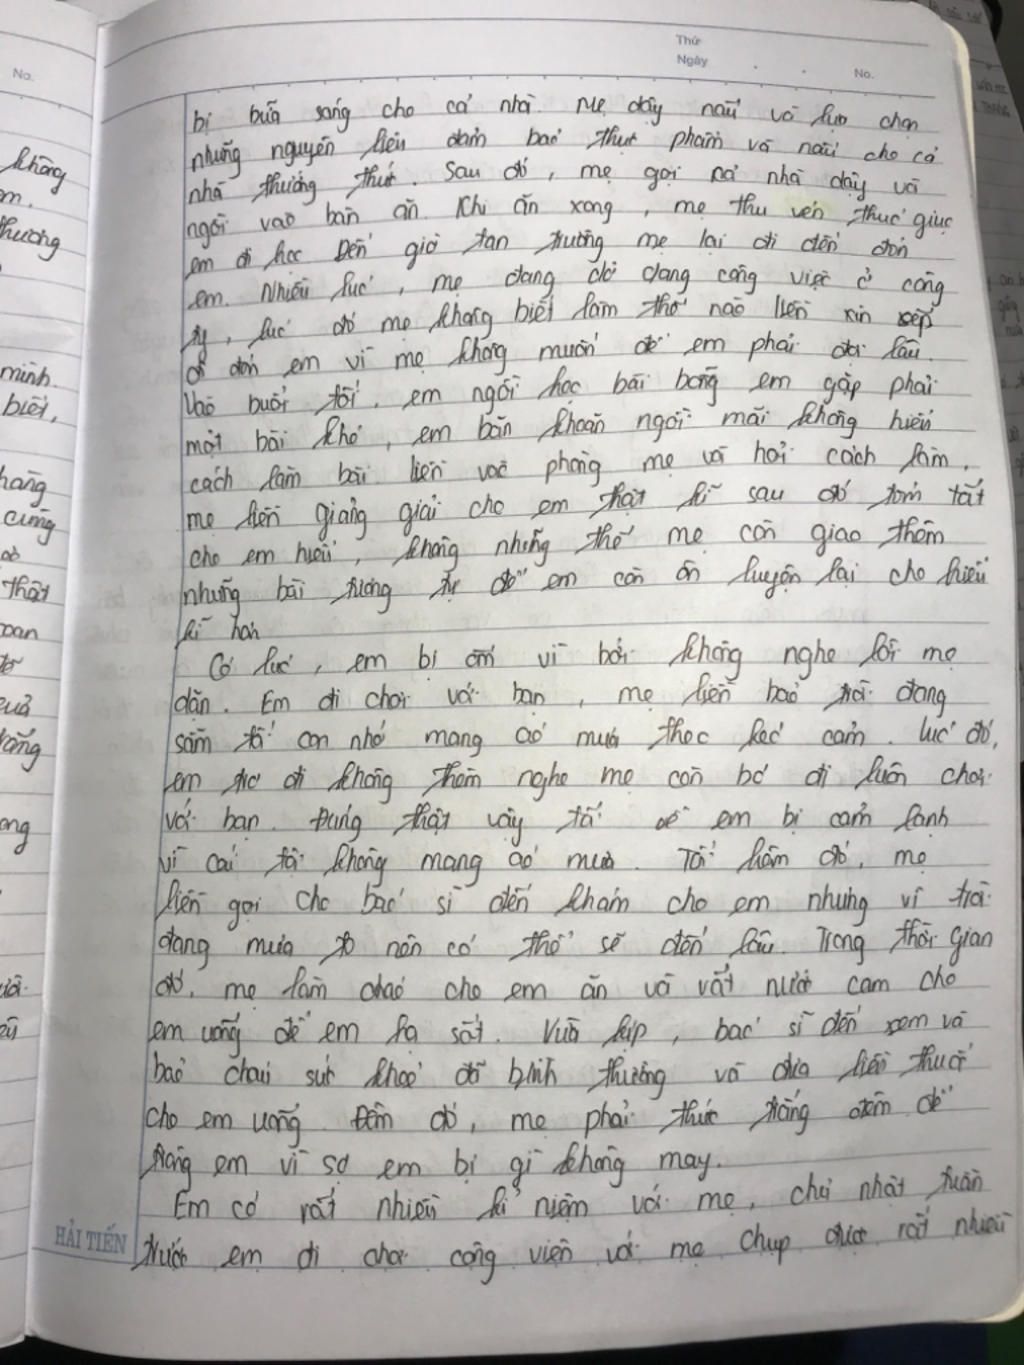 Thứ
Ngày
No.
No.
bị bữa sáng cho cả nhà. Mẹ dậy nấu và lựa chọn
những nguyên liệu đảm bảo thực phẩm và nấu cho cả
nhà thưởng thức. Sau đó, mẹ gọi cả nhà dậy và
ngồi vào bàn ăn. Khi ăn xong, mẹ thu vén thúc giục
em đi học. Đến giờ tan trường mẹ lại đi đến đón
em. Nhiều lúc, mẹ đang dở dang công việc ở công
ty, lúc đó mẹ không biết làm thế nào liền xin sếp
đi đón em vì mẹ không muốn để em phải đợi lâu.
Vào buổi tối, em ngồi học bài bỗng em gặp phải
một bài khó, em băn khoăn ngồi mãi không hiểu
cách làm bài liền vào phòng mẹ và hỏi cách làm.
mẹ liền giảng giải cho em thật kĩ sau đó tóm tắt
cho em hiểu, không những thế mẹ còn giao thêm
những bài tương tự để em còn ôn luyện lại cho hiểu
kĩ hơn
Có lúc, em bị ốm vì bởi không nghe lời mẹ
dặn. Em đi chơi với bạn, mẹ liền bảo trời đang
sầm tối con nhớ mang áo mưa theo kẻo cảm. lúc đó,
em đi không thèm nghe mẹ còn bỏ đi luôn chơi
với bạn. Đúng thật vậy tối về em bị cảm lạnh
vì cái tội không mang áo mưa. Tối hôm đó, mẹ
liền gọi cho bác sĩ đến khám cho em nhưng vì trời
đang mưa to nên có thể sẽ đến lâu. Trong thời gian
đó, mẹ làm cháo cho em ăn và vắt nước cam cho
em uống để em hạ sốt. Vừa kịp, bác sĩ đến xem và
bảo cháu sức khoẻ đã bình thường và đưa liều thuốc
cho em uống. Đêm đó, mẹ phải thức trắng đêm để
trông em vì sợ em bị gì không may.
Em có rất nhiều kỉ niệm với mẹ, chủ nhật tuần
trước em đi chơi công viên với mẹ chụp được rất nhiều
HẢI TIẾN
không
em.
thương
mình.
biết,
hàng
cũng
thật
quả
ong